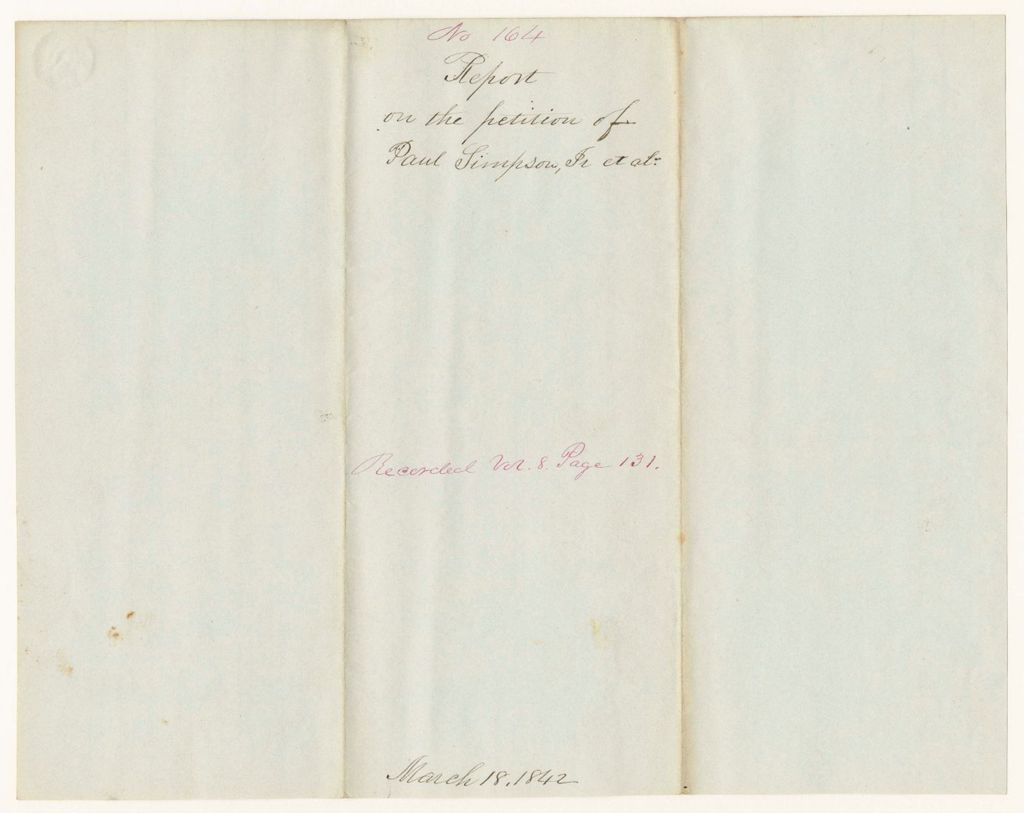 No 164
Report
on the petition of
Paul Simpson, Jr et al.
Recorded Vol. 8. Page 131.
March 18, 1842